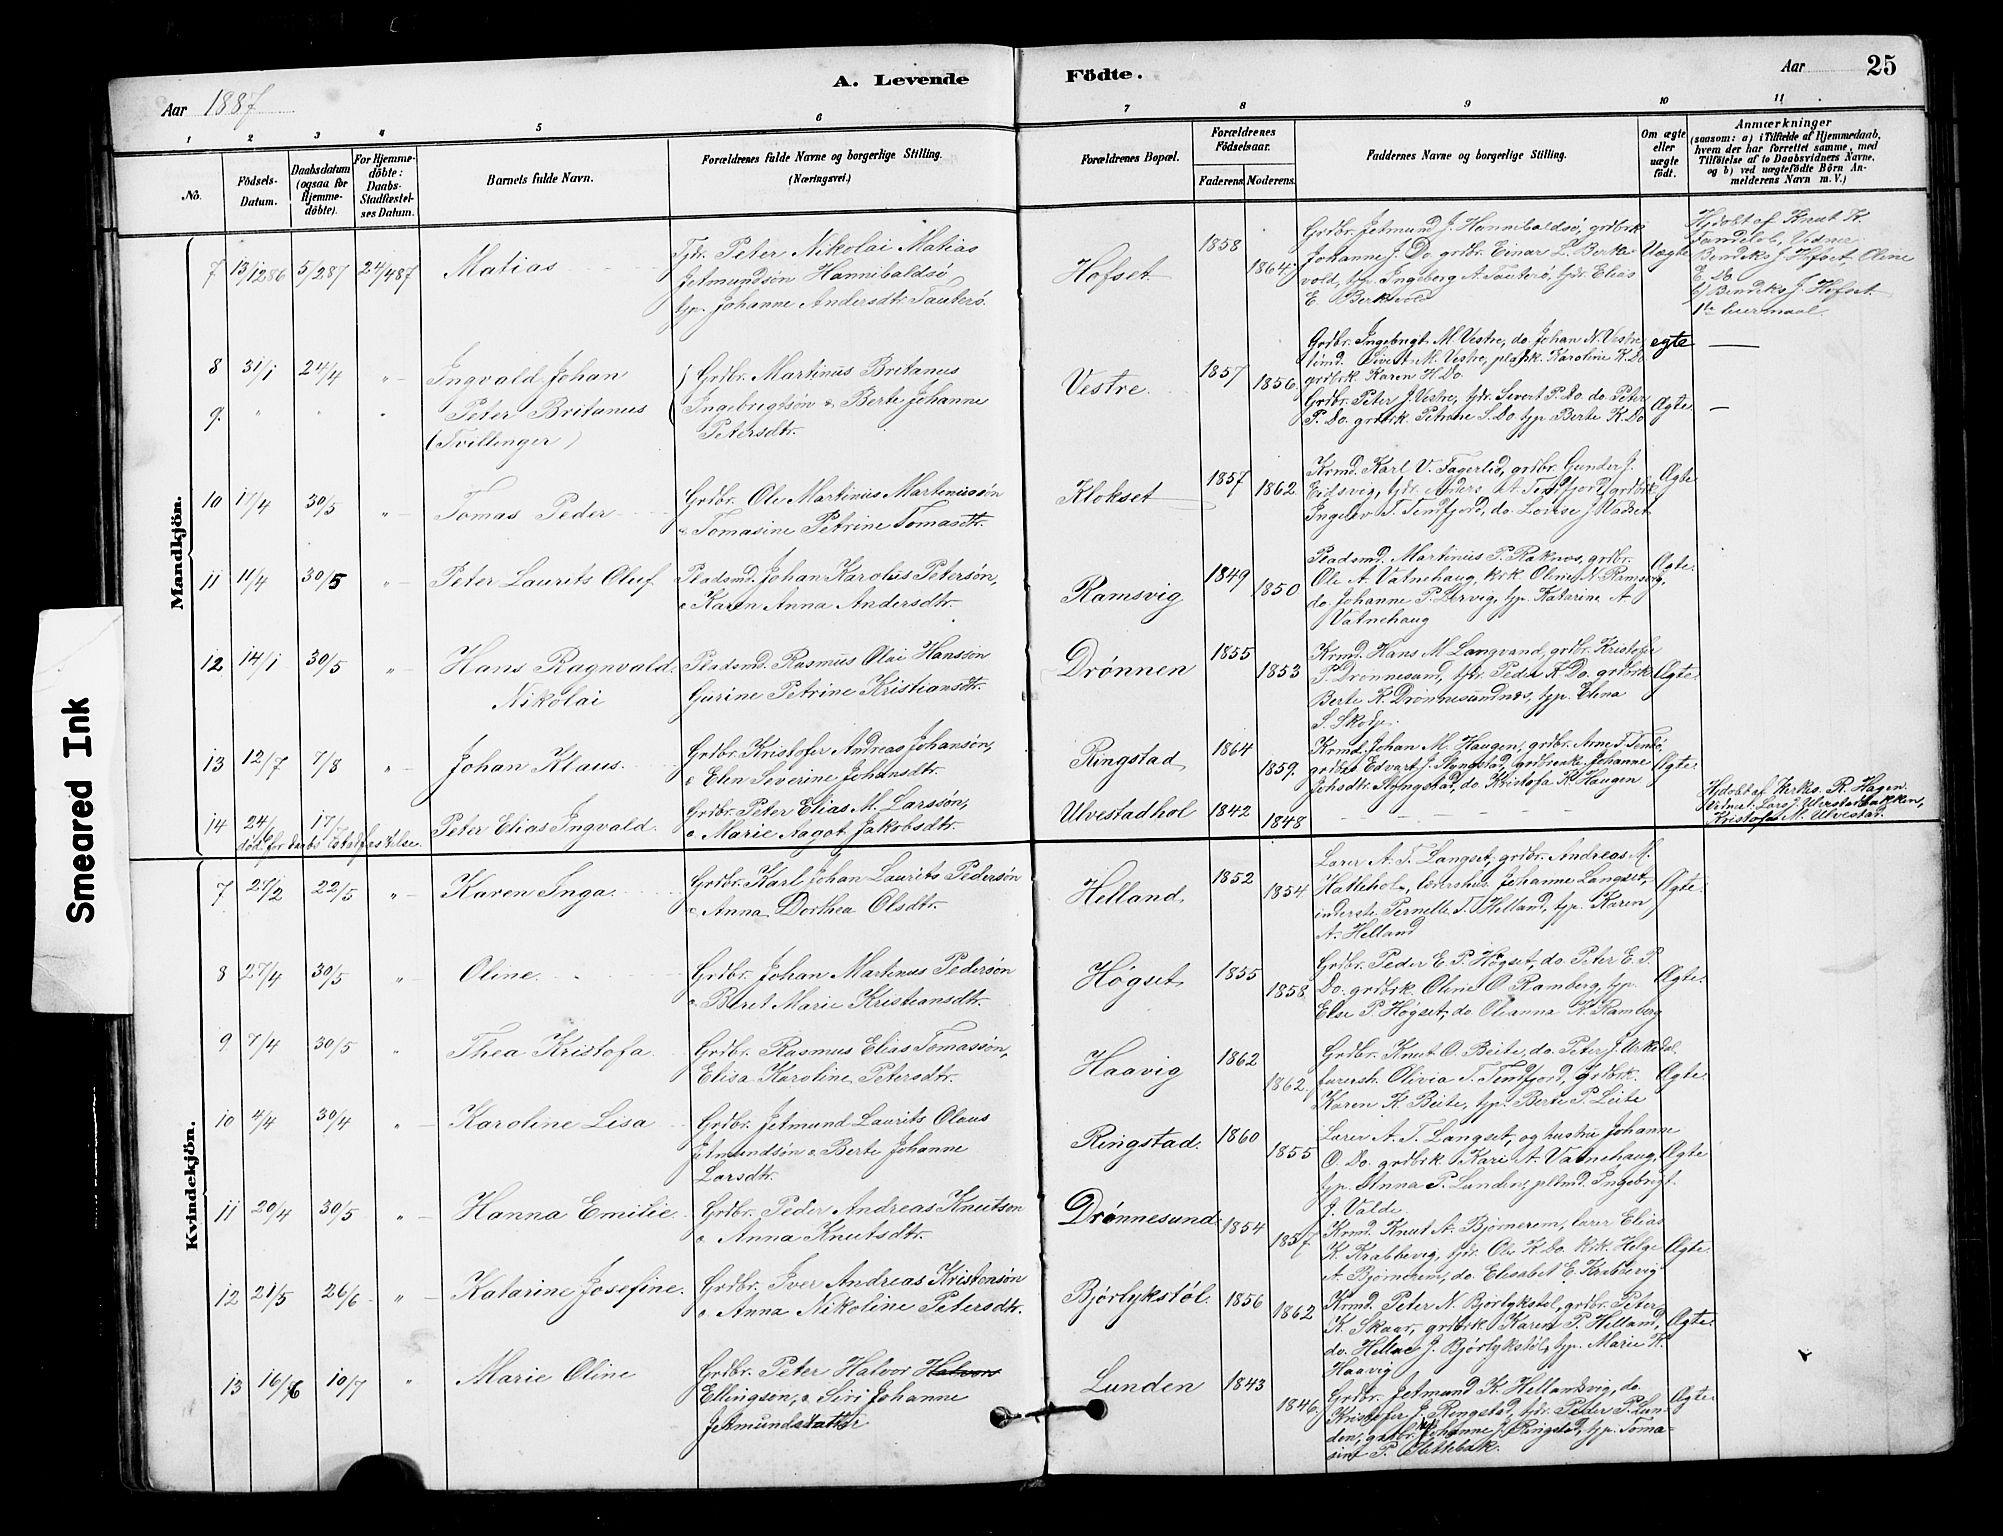 A. Levende Födte.
Aar 1887
Aar 25
1 2 3 4 5 6 7 8 9 10 11
No.
Födsels-Datum.
Daabsdatum (ogsaa for Hjemmedöbte).
For Hjemmedöbte: Daabs-Stadfæstelses Datum.
Barnets fulde Navn.
Forældrenes fulde Navne og borgerlige Stilling. (Næringsvei.)
Forældrenes Bopæl.
Forældrenes Födselsaar.
Faderens. Moderens.
Faddernes Navne og borgerlige Stilling.
Om ægte eller uægte födt.
Anmærkninger
(saasom: a) i Tilfælde af Hjemmedaab, hvem der har forrettet samme, med Tilföielse af to Daabsvidners Navne, og b) ved uægtefödte Börn Anmelderens Navn m. V.)
Mandkjön.
7 13/12 86 5/2 87 24/4 87 Matias
Tjdr. Peter Nikolai Matias
Jetmundsøn Hannibaldsø
typ. Johanne Andersdtr. Tauterø.
Hofset 1858 1864
Grdbr. Jetmund J. Hannibaldsø, grdbrk
Johanne J. Do. grdbr. Einar L. Berke
vold, typ. Ingeberg A. Tauterø, tjdr. Elias
E. Berkevold
Uægte
Hjdøbt af Knut K.
Tandelob, Vidner
Bendiks J. Hofset, Oline
E. Do.
b) Bendiks J. Hofset.
1te leiermaal.
8 31/1 24/4 " Ingvald Johan
9. " " " Peter Britanus
(Tvillinger)
Grdbr. Martinus Britanus
Ingebrigtsøn & Berte Johanne
Petersdtr.
Vestre 1857 1856
Grdbr. Ingebrigt M. Vestre, do. Johan N. Vestre,
tømd. Sivert M. Vestre, pladsk. Karoline K. Do
grdbrk. Karen H. Do.
egte —
Grdbr. Peter J. Vestre, tjdr. Sivert P. Do. do. Peter
P. Do. grdbrk. Petrine S. Do. typ. Berte K. Do
Ægte. —
10 17/4 30/5 " Tomas Peder
Grdbr. Ole Martinus Martinussøn
& Tomasine Petrine Tomasdtr.
Klokset 1857 1862
Krmd. Karl V. Fagerlid, grdbr. Gunder J.
Eidsvig, tjdr. Anders A. Tenfjord, grdbrk
Ingebor T. Tenfjord, do. Lovise J. Vadset
Ægte
11 11/4 30/5 " Peter Laurits Oluf
Pladsmd. Johan Karolius Petersøn,
& Karen Anna Andersdtr.
Ramsvig 1849 1850
Pladsmd. Martinus P. Raknes, grdbr.
Ole A. Vatnehaug, krk. Oline N. Ramsvig,
do. Johanne P. Lervig, typ. Katarine A
Vatnehaug
Ægte.
12 14/1 30/5 " Hans Ragnvald
Nikolai
Pladsmd. Rasmus Olai Hanssøn
Gurine Petrine Kristiansdtr.
Drønnen 1855 1853
Krmd. Hans M. Langvand, grdbr. Kristofer
P. Drønnesund, tjdr. Peder K. Do. grdbrk
Berte K. Drønnesundnes, typ. Elina
S. Skotje.
Ægte.
13 12/7 7/8 " Johan Klaus.
Grdbr. Kristofer Andreas Johansøn,
& Elen Severine Johansdtr.
Ringstad 1864 1859.
Krmd. Johan M. Haugen, grdbr. Arne T. Tenbø,
grdbr. Edvart J. Ryngstad, grdbrenke Johanne
Johsdtr. Ryngstad, do. Kristofa K. Haugen
Ægte
14 24/6 17/7 Peter Elias Ingvald.
død før daabs Stadfæstelse.
Grdbr. Peter Elias M. Larssøn,
& Marie Aagot Jakobsdtr.
Ulvestadhol 1842 1848
Hjdøbt af Kirkes. R. Hagen.
Vidner: Lars J. Ulvestadbakken,
Kristofer N. Ulvestad.
Kvindekjön.
7 27/2 22/5 " Karen Inga
Grdbr. Karl Johan Laurits Pedersøn
& Anna Dorthea Olsdtr.
Helland 1852 1854
Lærer A. T. Langset, grdbr. Andreas M.
Hatlehol, lærershus. Johanne Langset,
inderste Pernelle T. Helland, typ. Karen
A. Helland
Ægte.
8 27/4 30/5 " Oline.
Grdbr. Johan Martinus Pedersøn
& Beret Marie Kristiansdtr.
Høgset 1855 1858
Grdbr. Peder E. P. Høgset, do. Peter E. P.
Do. grdbrk. Oline O. Ramberg, typ.
Else P. Høgset, do. Oleanna K. Ramberg
Ægte.
9 7/4 30/5 " Thea Kristofa.
Grdbr. Rasmus Elias Tomassøn,
Elisa Karoline Petersdtr.
Haavig 1862 1862
Grdbr. Knut O. Beite, do. Peter J. Urkedal
furersh. Olivia T. Tendfjord, grdbrk.
Karen K. Beite, typ. Berte P. Leite
Ægte.
10 4/4 30/4 " Karoline Lisa
Grdbr. Jetmund Laurits Olaus
Jetmundsøn & Berte Johanne
Larsdtr.
Ringstad. 1860 1855
Lærer A. T. Langset, og hustru Johanne
O. Do. grdbrk. Kari A. Vatnehaug,
typ. Anna P. Lunden, pllmd. Ingebrigt
J. Valde.
Ægte
11 20/4 30/5 " Hanna Emilie.
Grdbr. Peder Andreas Knutsøn
& Anna Knutsdtr.
Drønnesund 1854 1857
Krmd. Knut A. Bjørnerem, lærer Elias
K. Krabbevig, tjdr. Ole K. Do. krk. Helge
A. Bjørnerem, do. Elisabet E. Krabbevig
Ægte.
12 21/5 26/6 " Katarine Josefine.
Grdbr. Iver Andreas Kristensøn
& Anna Nikoline Petersdtr.
Bjørlykstøl. 1856 1862
Krmd. Peter N. Bjørlykstøl, grdbr. Peter
K. Skaar, grdbrk. Karen P. Helland,
do. Hellae J. Bjørlykstøl, typ. Marie K.
Haavig
Ægte.
13 16/6 10/7 " Marie Oline
Grdbr. Peter Halvor Halvors
Ellingsøn, & Siri Johanne
Jetmundsdatter
Lunden 1843 1846.
Grdbr. Jetmund K. Hellandsvig, do.
Kristofer J. Ringstad, tjdr. Peder P. Lun-
den, grdbr. Johanne J. Ringstad, typ. Toma-
sine P. Hatlebak.
Ægte.
Smeared Ink